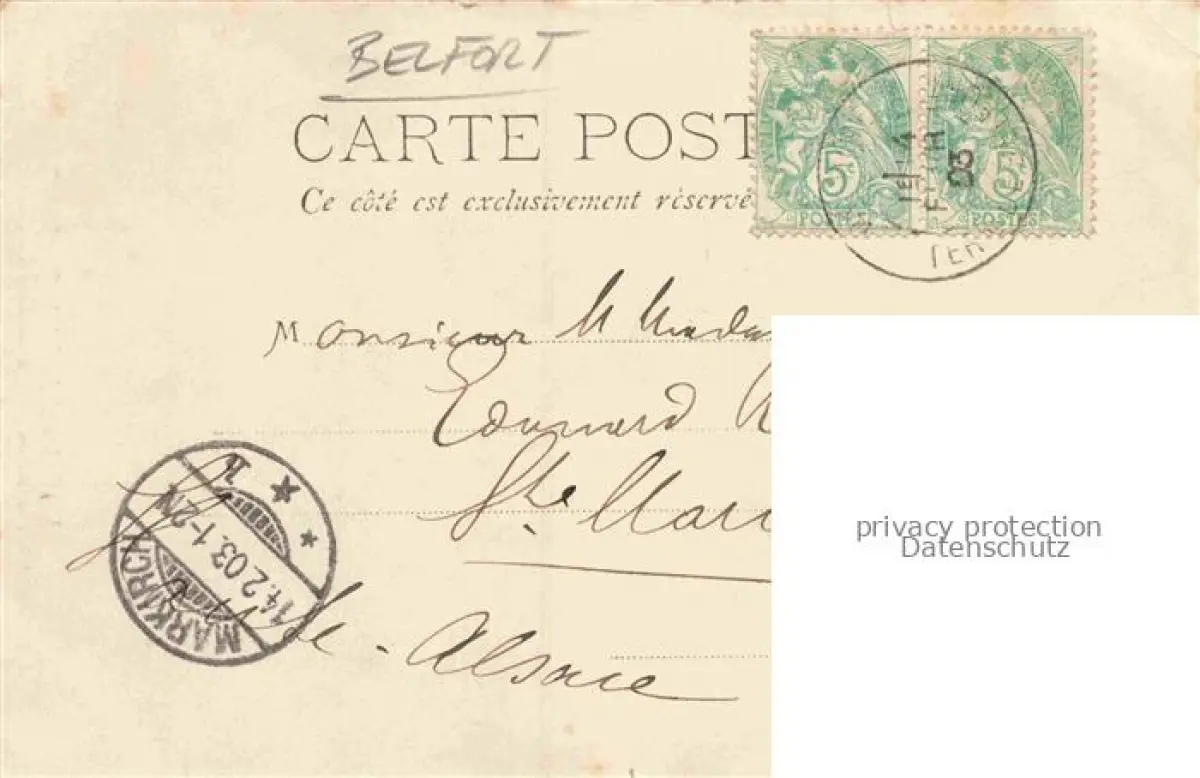 BELFORT
CARTE POST
Ce côté est exclusivement réservé
5 5
POSTES POSTES
FEVR
03
Monsieur
Edouard
Ste Mari
MARKIRCH
14.2.03. 1-2N
Alsace
privacy protection
Datenschutz